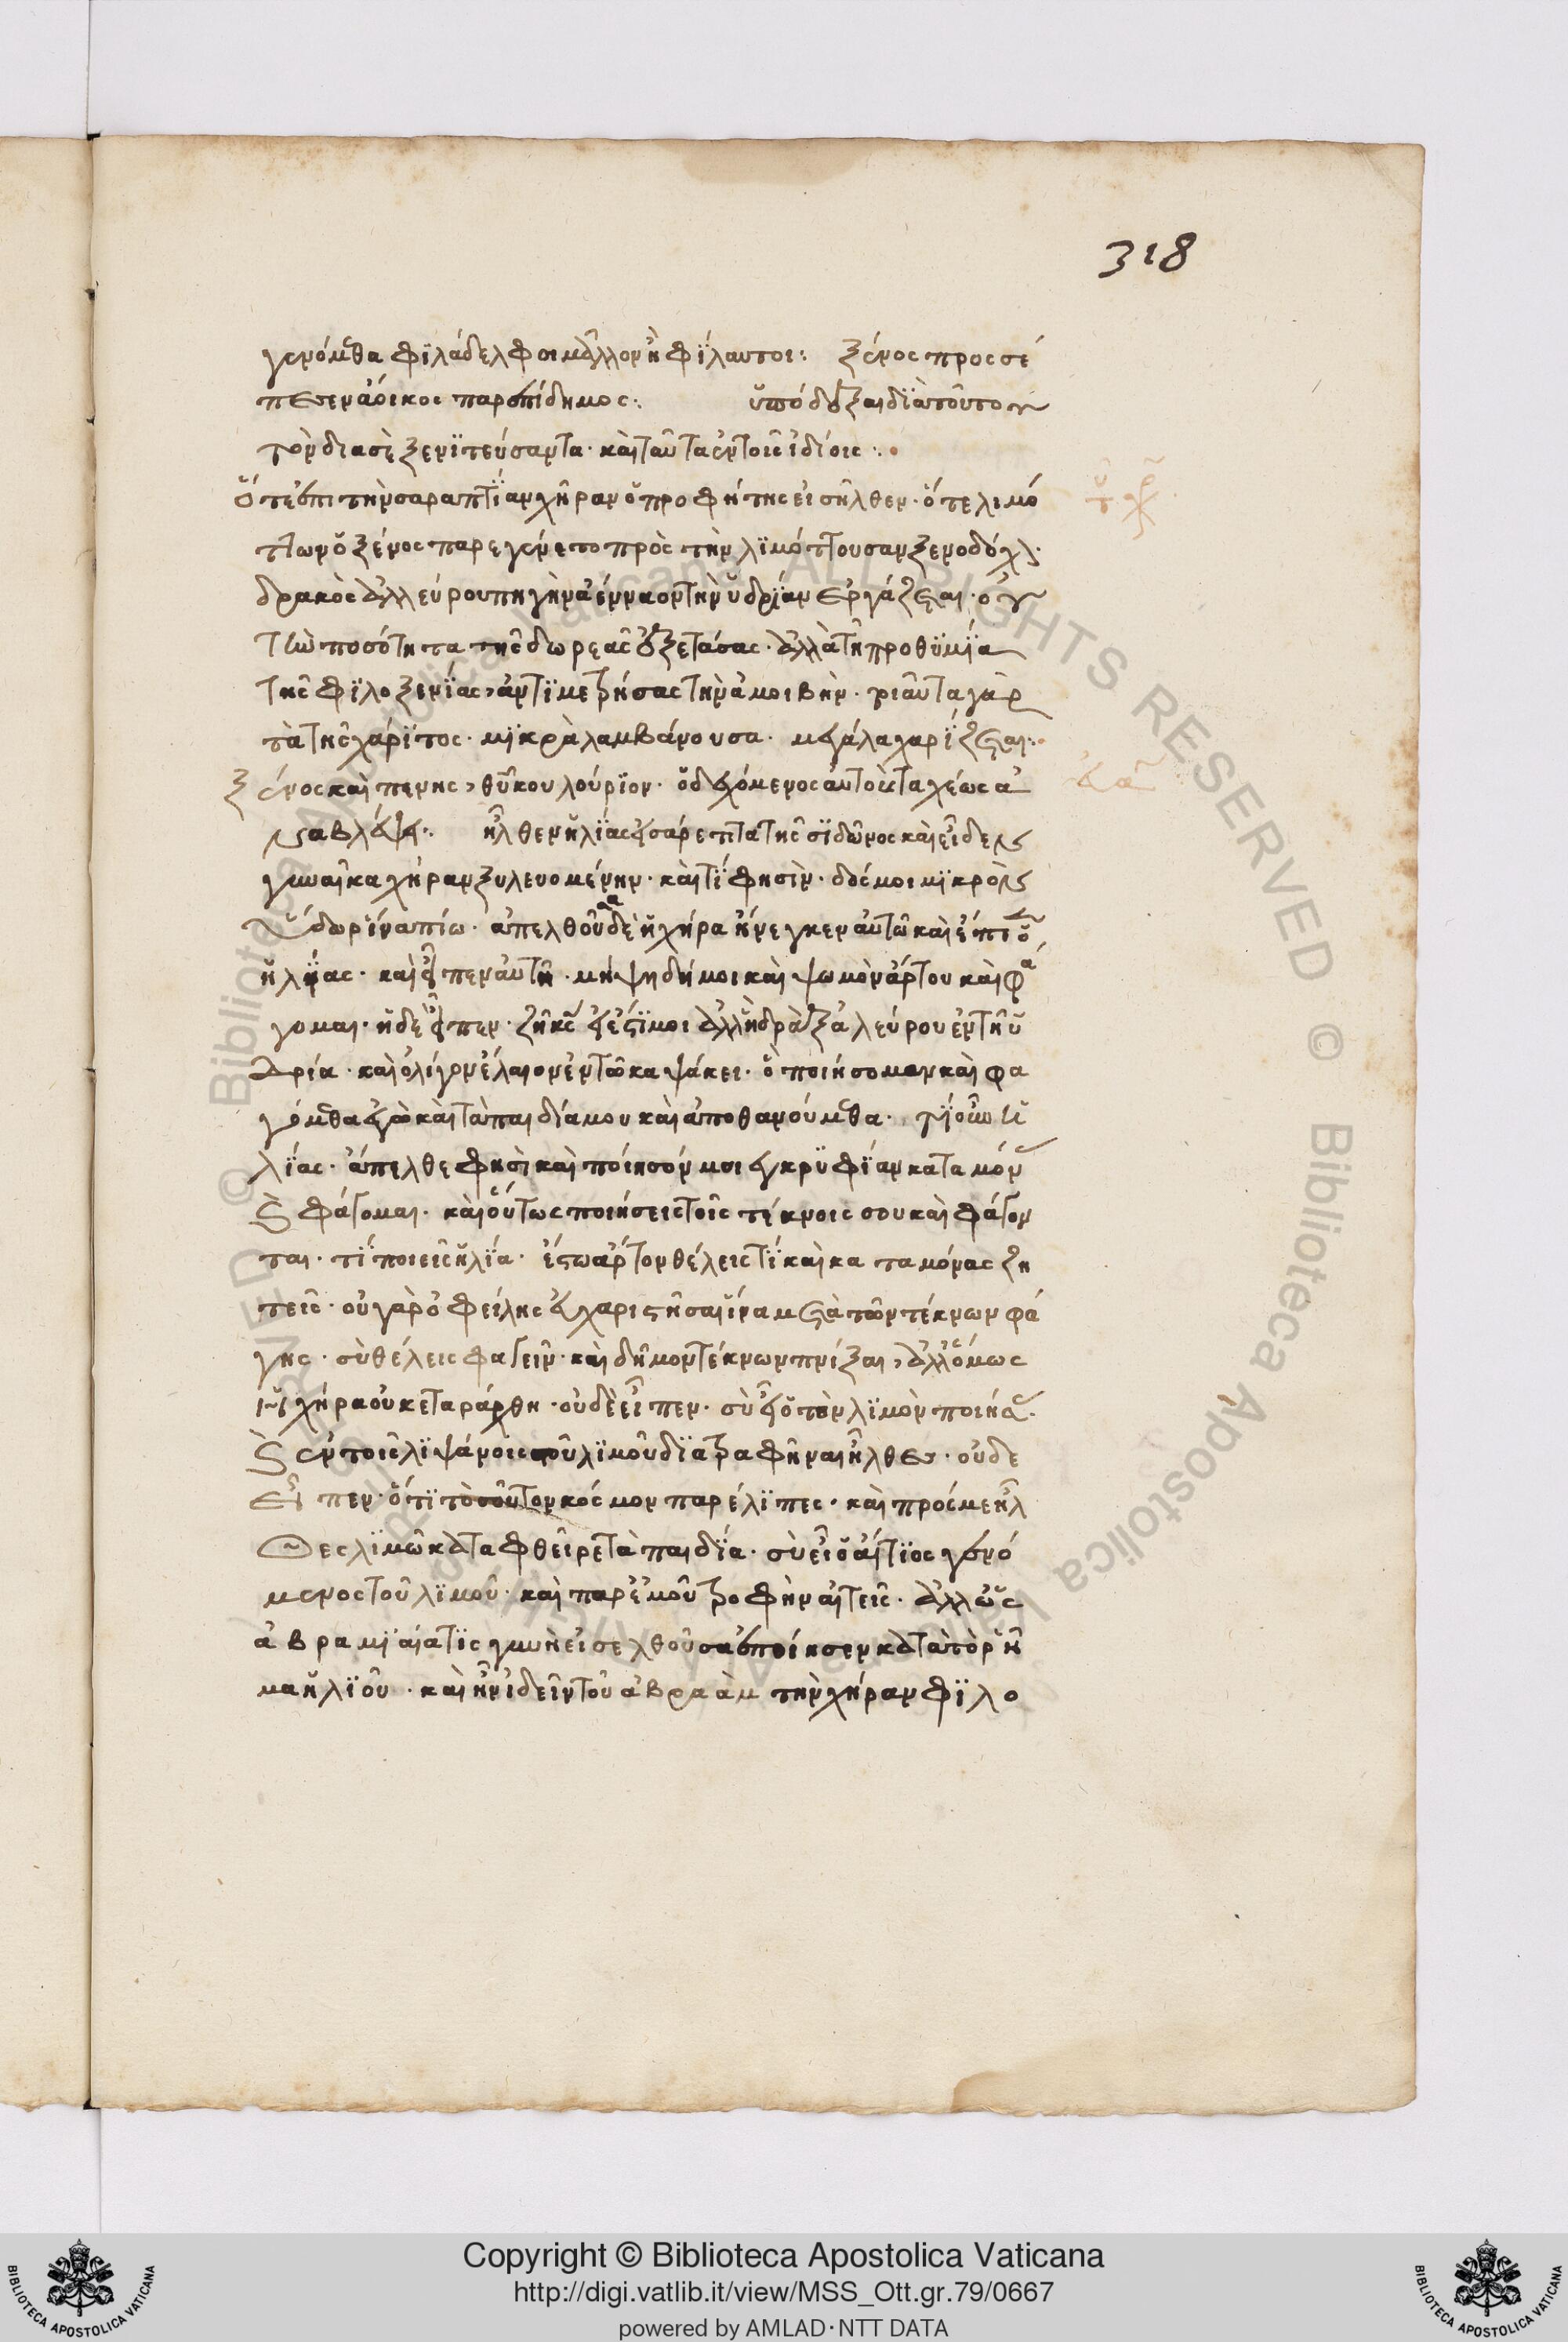 318
γενόμεθα φϊλάδελφοι μᾶλλον ἢ φΐλαυτοι: ξένος προς σέ
πάρεστιν ἄοικος παρεπίδημος: ὑπόδεξαι διὰ τοῦτον
τὸν δια σὲ ξενϊτεύσαντα· καὶ ταῦτα ἐν τοῖς ἰδίοις:
Ὅτε ἐπι τὴν σαραπτΐαν χήραν ὁ προφήτης εἰσῆλθεν· ὅτε λιμό
τ̅τ̅ων ὁ ξένος παρεγένετο πρὸς τὴν λϊμόττουσαν ξενοδόχον·
δρακὸς ἀλλεύρου πηγὴν ἀένναον τὴν ὑδρΐαν ἐργάζεται· οὐ
τὴν ποσότητα τῆς δωρεᾶς ἐξετάσας· ἀλλὰ τῇ προθυμΐα
τῆς φϊλοξενΐας, ἀντϊμετρήσας τὴν ἀμοιβήν· τοιαῦτα γὰρ
τὰ τῆς χάρϊτος· μϊκρὰ λαμβάνουσα· μεγάλα χαρΐζεται:
ξένος καὶ πένης, θεοῦ κουλούρϊον· ὁ δεχόμενος αὐτοὺς ταχέως ἀ
ναβλέψει: ἦλθεν ἠλΐας εἰς σάρεπτα τῆς σϊδῶνος καὶ εἶδεν
γυναῖκα χήραν ξυλευομένην· καὶ τΐ φησὶν· δός μοι μϊκρὸν
ὕδωρ ἵνα πίω· ἀπελθοῦσα δὲ ἡ χήρα ἤνεγκεν αὐτῶ καὶ ἔπιεν
ἠλΐας· καὶ εἶπεν αὐτῆ· μὴ ψηδή μοι καὶ ψωμὸν ἄρτου καὶ φά
γομαι· ἡ δὲ εἶπεν· ζῆ κς εἰ ἔστΐ μοι ἀλλ' ἢ δρὰξ ἀλεύρου ἐν τῆ ὑ
δρία· καὶ ὀλίγον ἔλαιον ἐν τῶ καψάκει· ὃ ποιήσομεν καὶ φα
γόμεθα ἐγὼ καὶ τὰ παιδία μου καὶ ἀποθανούμεθα· τΐ οὖν ἠ
λΐας· ἄπελθε φησὶ καὶ ποίησόν μοι ἐγκρυφΐαν κατα μόνας
καὶ φάγομαι· καὶ οὕτως ποιήσεις τοῖς τέκνοις σου καὶ φάγον
ται· τΐ ποιεῖς ἠλΐα· ἔστω ἄρτον θέλεις τΐ καὶ κατα μόνας ζη
τεῖς· οὐ γὰρ ὀφείλης εὐχαριστῆσαι ἵνα μετὰ τῶν τέκνων φά
γης· σὺ θέλεις φαγεῖν· καὶ δῆμον τέκνων πνίξαι, ἀλλ' ὅμως
ἡ χήρα οὐκ ἐταράχθη· οὐδὲ εἶπεν· σὺ εἶ ὁ τὸν λϊμὸν ποιήσας·
καὶ ἐν τοῖς λϊψάνοις τοῦ λϊμοῦ δϊατραφῆναι ἦλθες· οὐδε
εἶπεν· ὅτϊ τὸσοῦτον κόσμον παρέλϊπες· καὶ πρός με ἦλ
θες λϊμῶ καταφθεῖρε τὰ παιδΐα· σὺ εἶ ὁ αἴτϊος γενό
μενος τοῦ λϊμοῦ· καὶ παρ' ἐμοῦ τροφὴν αἰτεῖς· ἀλλ' ὡς
ἀβραμϊαίατϊς γυνὴ εἰσελθοῦσα ἐποίησεν κατὰ τὸ ῥῆ
μα ἠλϊοῦ· καὶ ἦν ἰδεῖν τοῦ ἀβραὰμ τὴν χήραν φϊλο
Copyright © Biblioteca Apostolica Vaticana
http://digi.vatlib.it/view/MSS_Ott.gr.79/0667
powered by AMLAD·NTT DATA